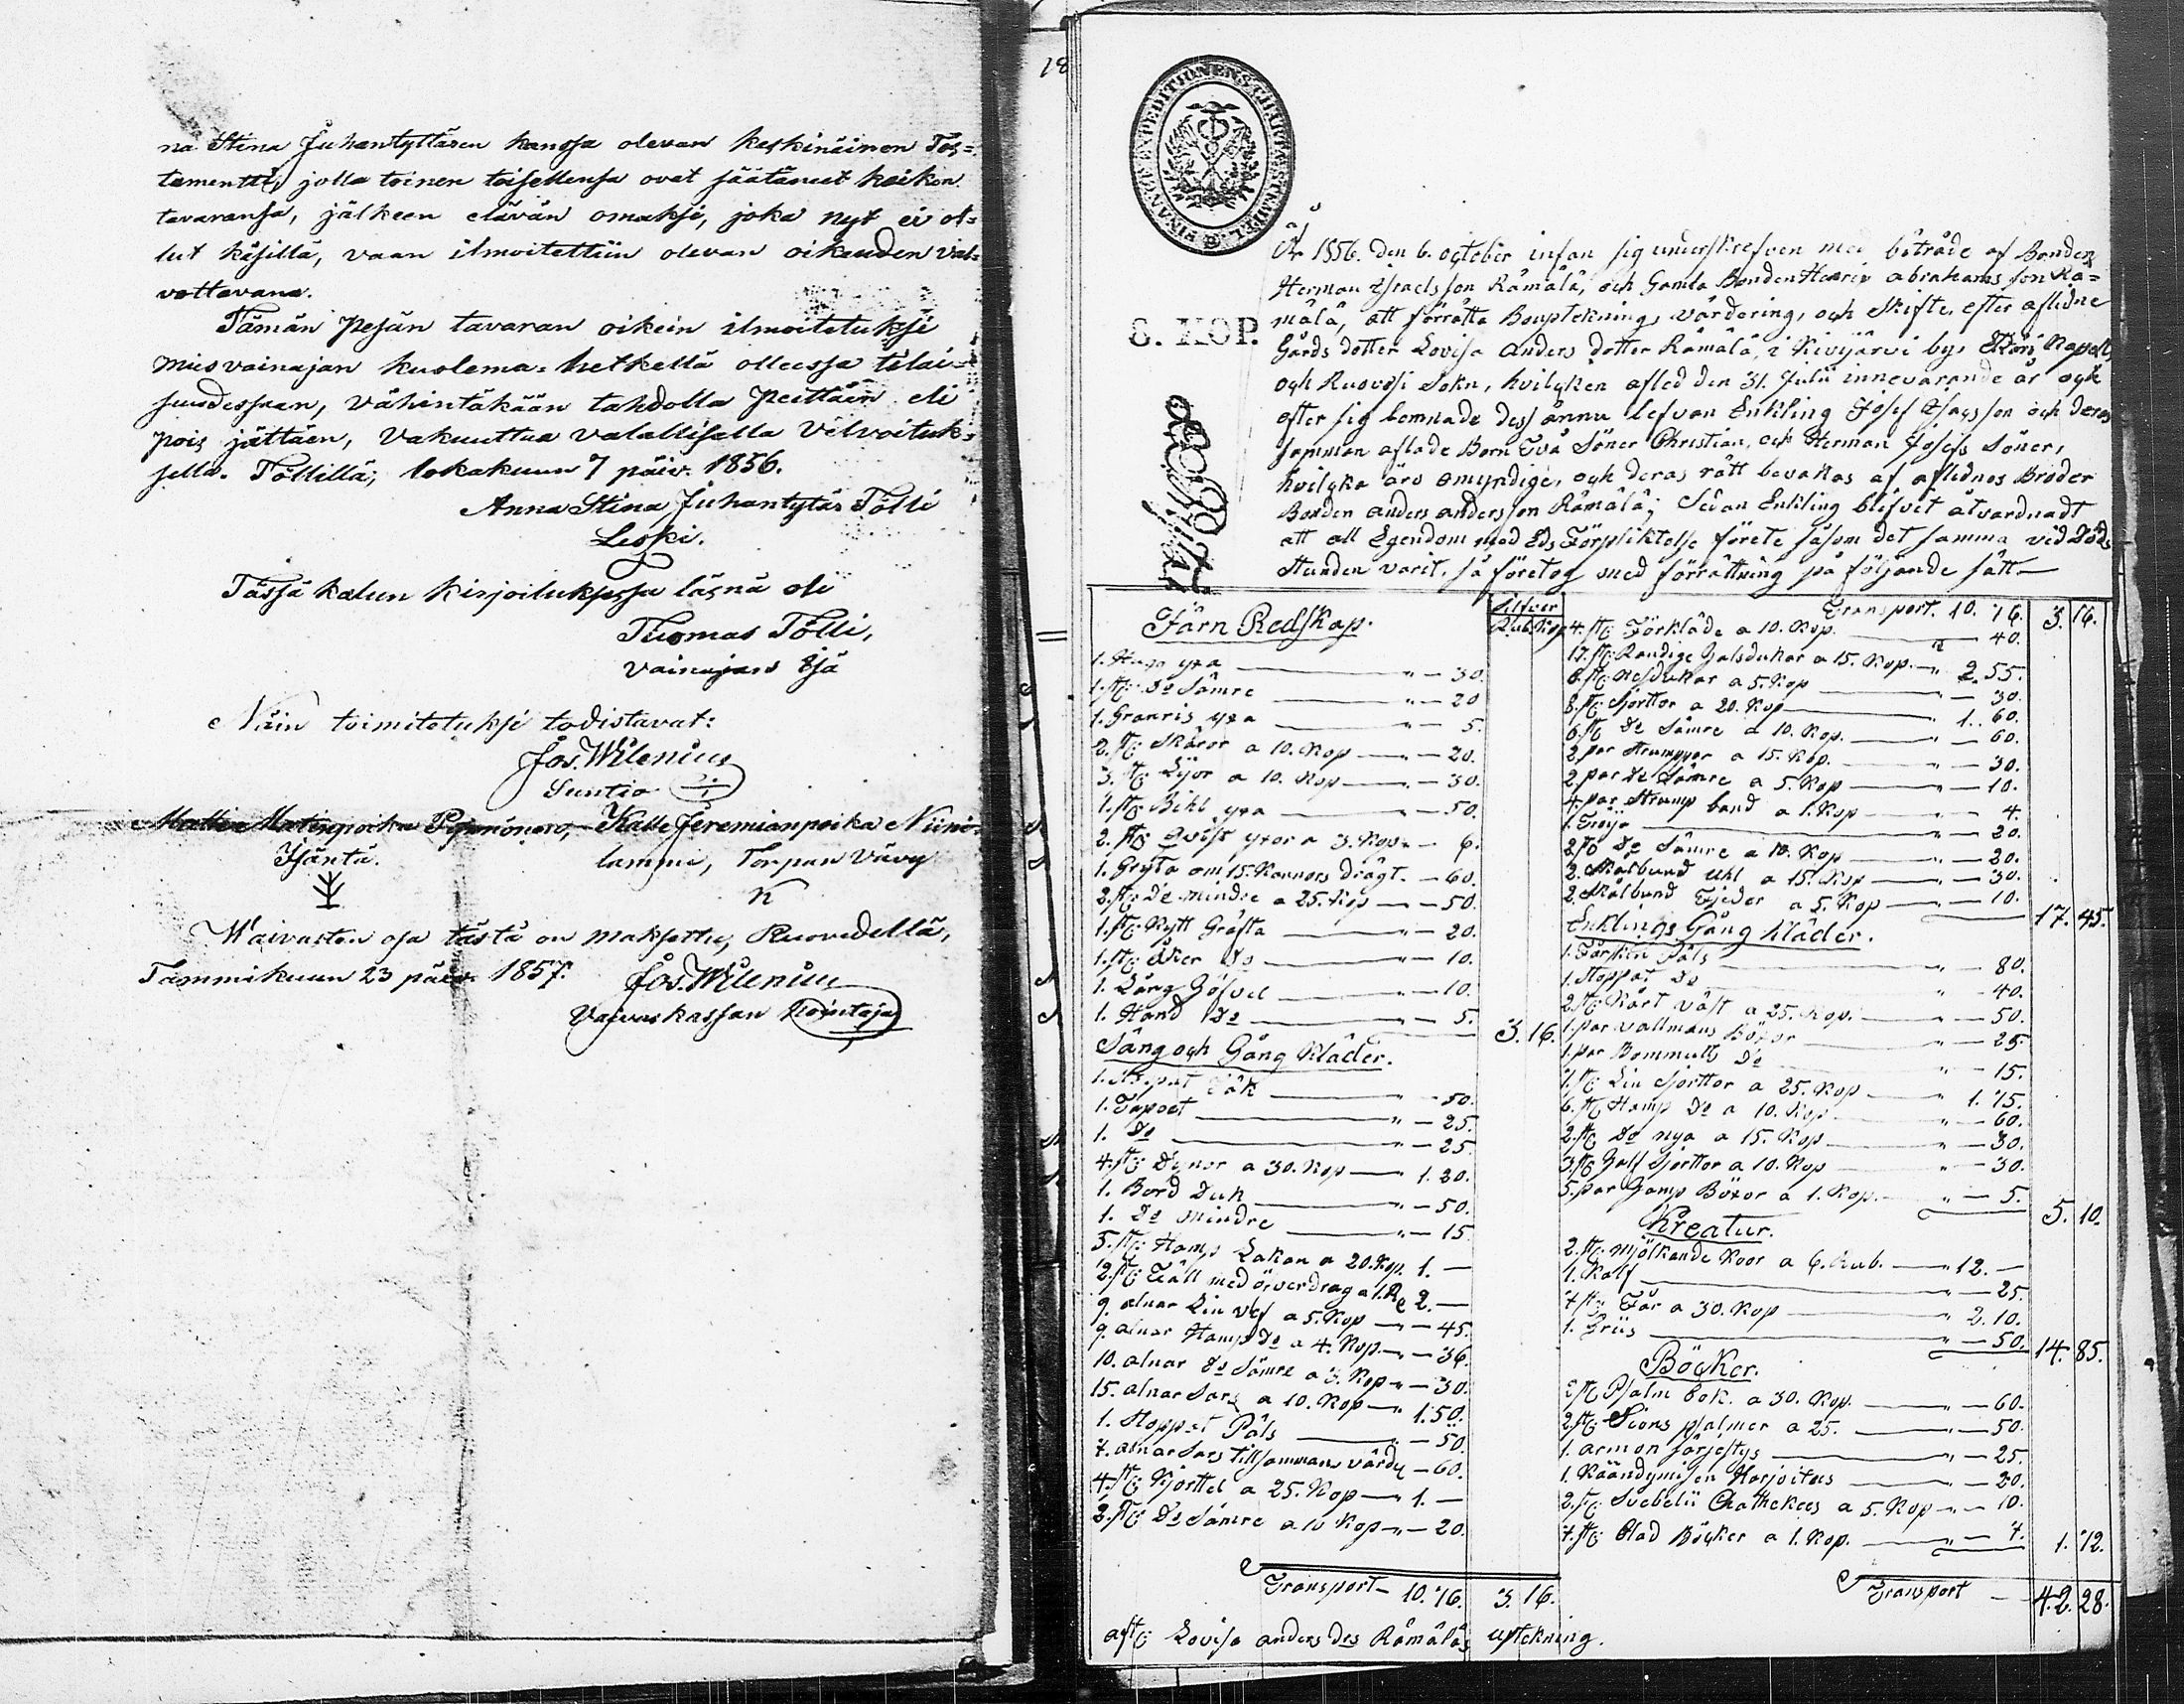 na Stina Juhantyttären kanssa olevan keskinäinen Tes=
tamentti, jolla toinen toisellensa ovat säätäneet kaiken
tavaransa, jälkeen elävän omaksi, joka nyt ei ol=
lut käsillä, vaan ilmoitettiin olevan oikeuden val=
vottavana.
Tämän pesän tavaran oikein ilmoitetuksi
miesvainajan kuolema=hetkellä olleessa tilai=
suudessaan, vähintäkään tahdolla peittäin eli
pois jättäen, vakuuttaa valallisella velvoituk=
sella. Töllillä, lokakuun 7 päiv. 1856.
Anna Stina Juhantytär Tölli
Leski.
Tässä kalun kirjoituksessa läsnä oli
Tuomas Tölli,
vainajan Isä
Näin toimitetuksi todistavat:
Jos. Wilenius
Suntio
Matti Matinpoika Kalle Jeremianpoika Niini=
Isäntä. lammi, Torpan Vävy
K
Waivasten osa tästä on maksettu, Ruovedellä,
Tammikuun 23 päiv. 1857. Jos. Wilenius
Vaivaskassan Hointaja
18
FINANCE EXPEDITIONENS CHARTÆ STÄMPEL
6. KOP.
År 1856. den 6. october infan sig underskrefven med biträde af Bonden
Herman Israelsson Rämälä, och Gamla Bonden Henric abrahams son Rä=
mälä, att förrätta Bouptekning, värdering, och Skifte, efter aflidne
Gårds dotter Lovisa Anders dotter Rämälä, i Kivijärvi by, Kapell,
och Ruovesi Sokn, hvilcken afled den 31. Julii innevarande år och
efter sig lemnade dess ännu lefvan Enkling Josef Isacsson och deras
samman aflade Barn Två Söner Christian, och Herman Josefs Söner,
hvilcka äro omyndige, och deras rätt bevakas af aflidnes Broder
Bonden anders andersson Rämälä; Sedan Enkling blifvit åtvardnadt
att all Egendom med Eds Förpliktelse förete såsom det samma vid Döds
Stunden varit, så företog med förrättning på följande sätt —
Järn Redskap. Silfver
Rub. Kop.
1. Hugg yxa — " — 30.
1. st: Do Sämre — " — 20
1. Granris yxa — " — 5.
2. st: Skäror a 10. Kop — " — 20.
3. st: Lijor a 10. Kop — " — 30.
1. st: Bihl yxa — " — 50.
2. st: Qvist yxor a 3. Kop " — 6.
1. Gryta om 15. Kannors drägt. — 60.
2. st: De mindre a 25. Kop — " — 50.
1. st: Nytt Gräfta — " — 20.
1. st: Åker Do — " — 10.
1. Lång Höfvel — " — 10.
1. Hand Do — " — 5. 3. 16.
Säng och Gång Kläder.
1. Täk — " — 50.
1. Tapoet — " — 25.
1. Do — " — 25
4. st: Dynor a 30. Kop — 1. 20.
1. Bord Duk — " — 50.
1. Do Mindre — " — 15
5. st: Hamp Lakan a 20. Kop. 1. —
2. st: Fäll med överdrag a 1. R 2. —
9. alnar Lin väf a 5. Kop — " — 45.
9. alnar Hamp Do a 4. Kop. — " — 36.
10. alnar Do Sämre a 3. Kop " — 30.
15. alnar Sars a 10. Kop — " 1. 50.
1. Stoppat Päls — " — 50.
7. alnar Sars tillsammans värde — 60.
4. st: Kjorttel a 25. Kop — " 1. —
2. st: Do Sämre a 10 Kop " — 20.
Transport — 10. 76. 3. 16.
Transport. 10. 76. 3. 16.
4. st: Förkläde a 10. Kop. — 40.
17. st: Randige Halsdukar a 15. Kop. — " 2. 55.
6. st: Nesdukar a 5. Kop — " — 30.
8. st: Sjorttor a 20. Kop — " 1. 60.
6. st: De Sämre a 10. Kop. — " — 60.
2. par Strumppor a 15. Kop. — " — 30.
2. par De Sämre a 5. Kop — " — 10.
4. par Strump band a 1. Kop — " — 4.
1. Tröija — " — 20.
2. st: Do Sämre a 10. Kop — " — 20.
2. Skålbund Uhl a 15. Kop — " — 30.
2. Skålbund Fjeder a 5. Kop — " — 10. 17. 45.
Enklings Gång Kläder.
1. Fårskin Päls — " — 80.
1. Stoppat Do — " — 40.
2. st: Kårt väst a 25. Kop. — " — 50.
1. par vallmans Böxor — " — 25
1. par Bommulls Do — " — 15.
7. st: Lin Sjorttor a 25. Kop — " 1. 75.
6. st: Hamp Do a 10. Kop — " — 60.
2. st: Do nya a 15. Kop — " — 30.
3. st: Half Sjorttor a 10. Kop — " — 30.
5. par Hamp Böxor a 1. Kop. — " — 5. 5. 10.
Kreatur.
2. st: mjölkande Koor a 6. Rub. — " 12. —
1. Kalf — " — 25
7. st: Får a 30. Kop — " 2. 10.
1. Griis — " — 50. 14. 85.
Böcker.
2 st: Psalm bok. a 30. Kop. — " — 60.
2. st: Sions psalmer a 25. — " — 50.
1. armon järjestys — " — 25.
1. Käändymisen Harjoitus — " — 20.
2. st: Svebelii Chathekees a 5. Kop — " — 10.
7. st: Blad Böcker a 1. Kop. — " — 7. 1. 72.
Transport — 42. 28.
Lovisa anders drs Rämäläs uptekning.